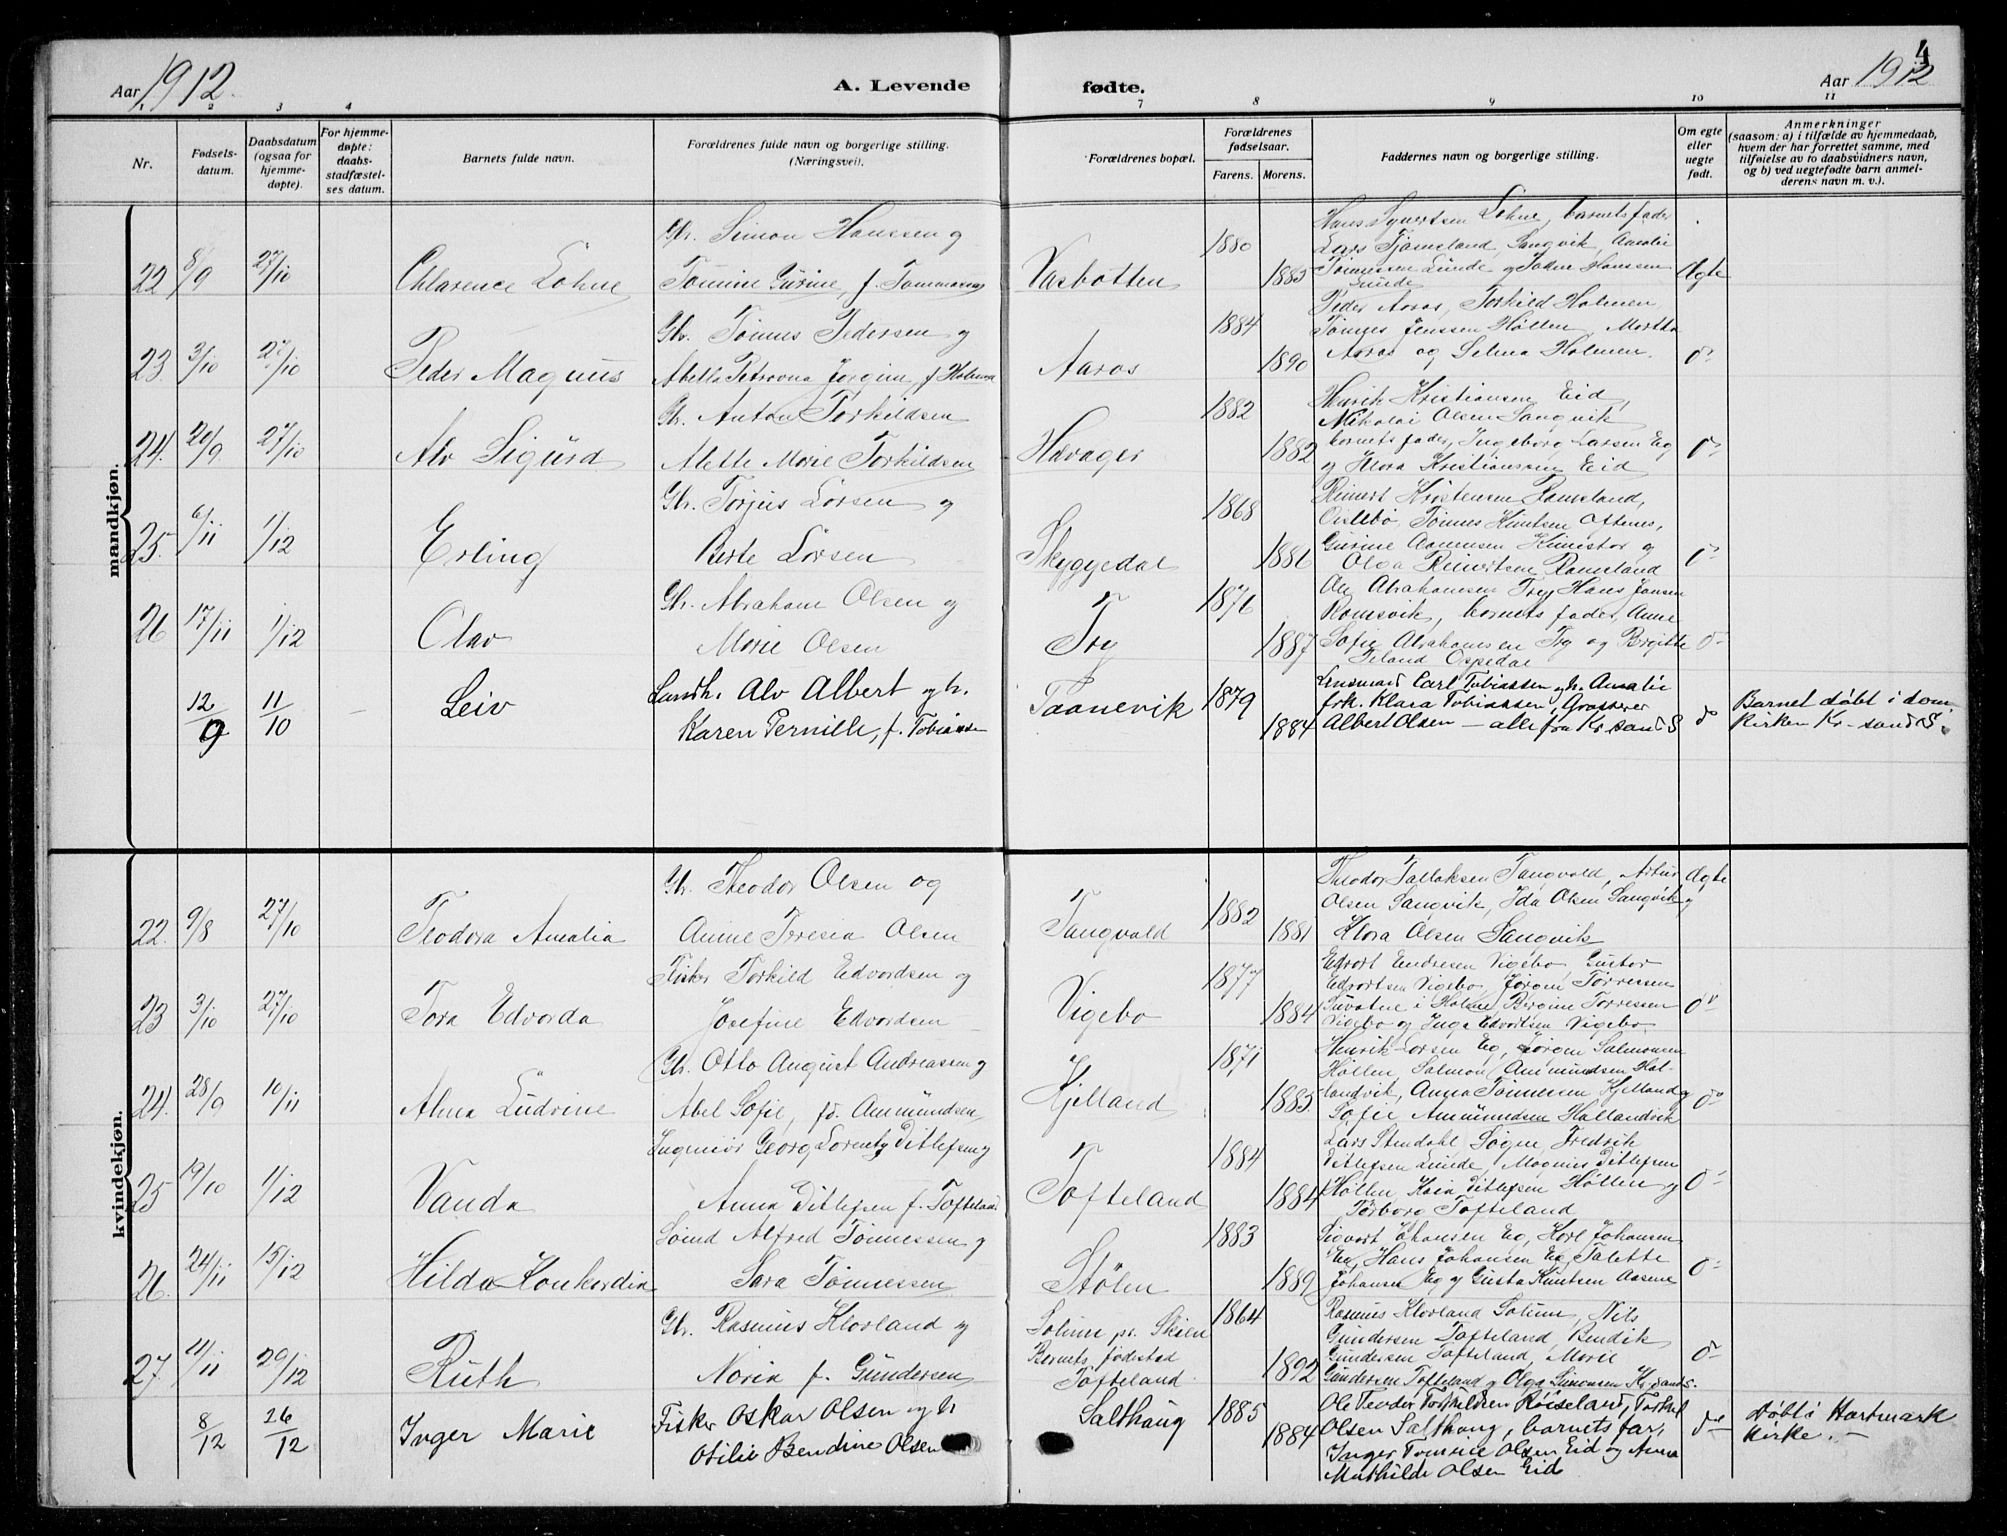 4
Aar 1912.
A. Levende
fødte.
Aar 1912
1 2 3 4 7 8 9 10 11
Nr.
Fødsels-
datum.
Daabsdatum
(ogsaa for
hjemme-
døpte).
For hjemme-
døpte:
daabs-
stadfæstel-
ses datum.
Barnets fulde navn.
Forældrenes fulde navn og borgerlige stilling.
(Næringsvei).
Forældrenes bopæl.
Forældrenes
fødselsaar.
Farens. Morens.
Faddernes navn og borgerlige stilling.
Om egte
eller
uegte
født.
Anmerkninger
(saasom: a) i tilfælde av hjemmedaab,
hvem der har forrettet samme, med
tilføielse av to daabsvidners navn,
og b) ved uegtefødte barn anmel-
derens navn m. v.).
mandkjøn.
22 8/9 27/10 Chlarence Lohne
Gbr. Simon Hanssen og
Tomine Gurine, f. Tommassen
Vasbotten 1880 1883
Hans Syvertsen Lohne, barnets fader
Lars Tjomeland, Langvik, Amalie
Tønnessen Lunde og Hanssen
Lunde
Ægte
23. 3/10 27/10 Peder Magnus
Gbr. Tønnes Pedersen og
Abella Petrovna Jørgine, f. Holmen
Aaros 1884 1890
Peder Aaros, Torkild Holmen
Tønnes Jenssen Høllen, Martha
Aaros og Selma Holmen.
do
24. 20/9 27/10 Alv Sigurd
Gbr. Anton Torkildsen
Alette Marie Torkildsen
Havager 1882 1882
Henrik Kristiansen Eid,
Nikolai Olsen Langvik
barnets fader, Ingeborg Larsen Eg
og Klara Kristiansen Eid
do
25. 6/11 1/12 Erling
Gbr. Torjus Larsen og
Berte Larsen
Skyggedal 1868 1886
Reinert Kristensen Rameland,
Oislebø, Tønnes Knutsen Oftenes,
Gurine Aanensen Kunestor og
Olga Reinertsen Rameland
do
26 17/11 1/12 Olav
Gbr. Abraham Olsen og
Marie Olsen
Try 1876 1887
Ole Abrahamsen Try, Hans Jansen
Romsvik, barnets fader, Anne
Sofie Abrahamsen Try og Birgitte
Ospedal
do
12/9 11/10 – Leiv
Landh. Alv Albert og h.
Karen Pernille, f. Tobiassen
Taanevik 1879 1884
Lensmand Carl Tobiassen og h. Amalie
frk. Klara Tobiassen, Grosserer
Albert Olsen – alle fra Kr.sand S
do
Barnet døbt i dom-
kirken Kr.sand S.
kvindekjøn.
22. 9/8 27/10 Teodora Amalia
Gbr. Theodor Olsen og
Anne Teresia Olsen
Tangvald 1882 1881
Theodor Tallaksen Tangvald, Artur
Olsen Langvik, Ida Olsen Langvik og
Klara Olsen Langvik
Ægte
23 3/10 27/10 Tora Edvarda
Fisker Torkild Edvardsen og
Josefine Edvardsen
Vigebo 1877 1884
Edvart Endresen Vigebo, Gustav
Edvartsen Vigebo, Jørgen Torressen
i Halse, Bergine Torressen
Vigebo og Inga Edvartsen Vigebo
do
24. 28/9 10/11 Alma Ludvine
Gbr. Otto August Andreassen og
Abel Sofie, fø. Aanmundsen
Kjelland 1871 1883
Henrik Larsen Eg, Jørgen Salmonsen
Høllen, Salmon Aanmundsen Hal-
landvik, Anna Tønnesen Kjelland og
Sofie Aanmundsen Hallandvik
do
25 19/10 1/12 Vanda
Ingeniør Georg Lorentz Ditlefsen og
Anna Ditlefsen f. Tofteland
Tofteland 1884 1884
Lars Stendahl Søgne, Fredrik
Ditlefsen Lunde, Magnus Ditlefsen
Høllen, Kaia Ditlefsen Høllen og
Torborg Tofteland
do
26. 24/11 15/12 Hilda Konkordia
Alfred Tønnessen og
Sara Tønnessen
Stølen 1883 1889
Sigvart Johansen Eg, Karl Johansen
Eg, Hans Johansen Eg, Talette
Johansen Eg og Gusta Knutsen Aasene
do
27. 11/11 29/12 Ruth
Gbr. Rasmus Klovland og
Maria f. Gundersen
Solum pr. Skien
Barnets fødested
Tofteland
1864 1892
Rasmus Klovland Solum, Nils
Gundersen Tofteland, Bendik
Gundersen Tofteland, Marie
Gundersen Tofteland og Olga Simonsen Kr.sand S.
do
8/12 26/12 Inger Marie
Fisker Oskar Olsen og h
Otilie Bendine Olsen
Salthaug 1885 1884
Ole Teodor Torkildsen Røiseland, Torkel
Olsen Salthaug, barnets far,
Inger Tomine Olsen Eid og Anna
Mathilde Olsen Eid
do
Døbt i Hartmark
kirke. –